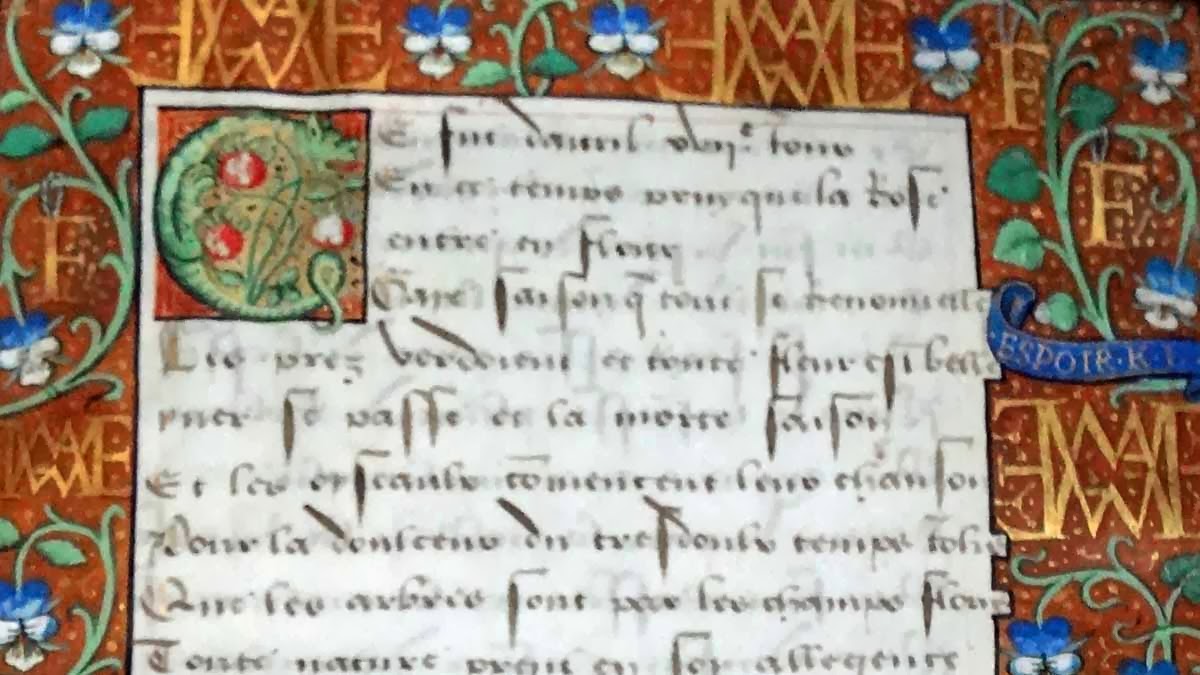 CE fut dauril vingtᵉ iour
En ce temps vray que la Rose
entre en fleur
Care saison q̄ tout se renouuelle
Les prez verdoient et toute fleur est belle
yuer se passe et la morte saison
Et les oyseaulx cōmencent leur chanson
Pour la doulceur du tresdoulx temps
Que les arbres sont par les champs
Toute nature prent en soy allegence
ESPOIR
F
F
F